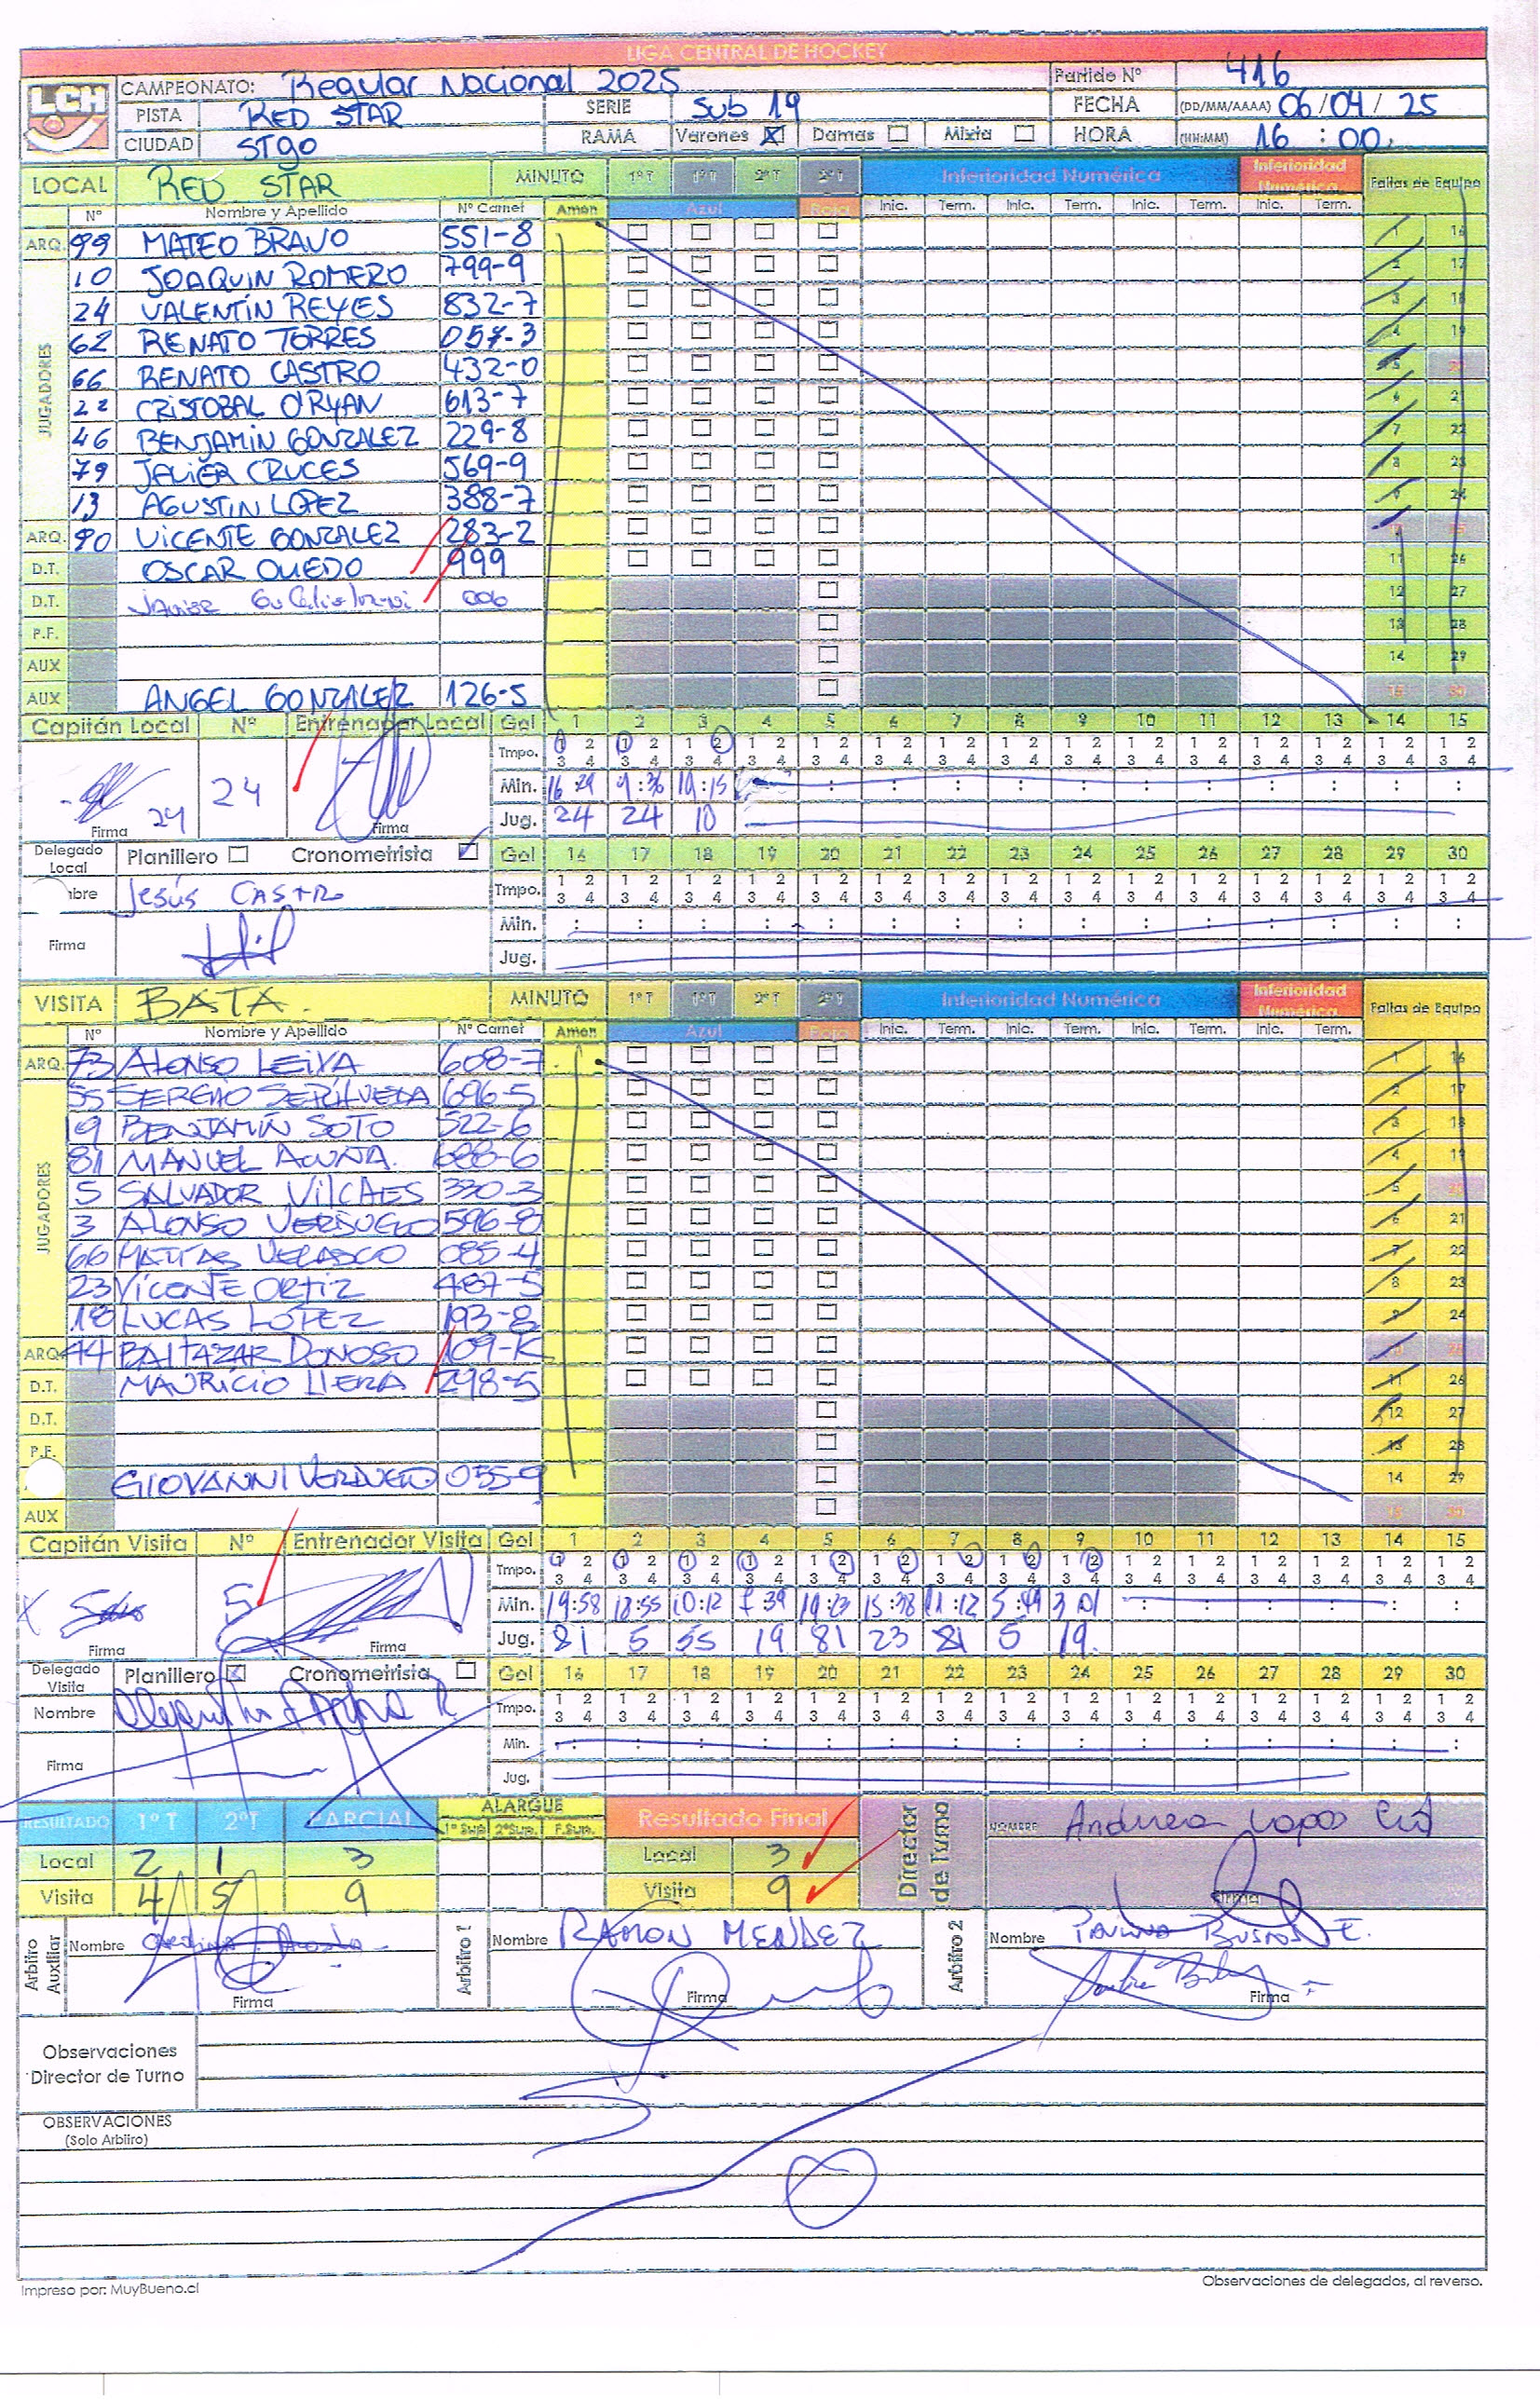 LIGA CENTRAL DE HOCKEY
LCH CAMPEONATO: Regular Nacional 2025 Partido Nº 416
PISTA RED STAR SERIE Sub 19 FECHA (DD/MM/AAAA) 06/04/25
CIUDAD STgo RAMA Varones X Damas Mixta HORA (HH:MM) 16:00
LOCAL RED STAR MINUTO 1ºT 1ºT 2ºT 2ºT Inferioridad Numérica Inferioridad Numérica Faltas de Equipo
Nº Nombre y Apellido Nº Carnet Amon Azul Roja Inic. Term. Inic. Term. Inic. Term. Inic. Term.
ARQ. 99 MATEO BRAVO 551-8 1 16
10 JOAQUIN ROMERO 799-9 2 17
24 VALENTÍN REYES 832-7 3 18
62 RENATO TORRES 057-3 4 19
JUGADORES
66 RENATO CASTRO 432-0 5 20
22 CRISTOBAL O'RYAN 613-7 6 21
46 BENJAMIN GONZALEZ 229-8 7 22
79 JAVIER CRUCES 569-9 8 23
13 AGUSTIN LOPEZ 388-7 9 24
ARQ. 90 VICENTE GONZALEZ 283-2 10 25
D.T. OSCAR OLIEDO 999 11 26
D.T. 006 12 27
P.F. 13 28
AUX 14 29
AUX ANGEL GONZALEZ 126-5 15 30
Capitán Local Nº Entrenador Local Gol 1 2 3 4 5 6 7 8 9 10 11 12 13 14 15
Tmpo. 1 2 3 4
24 Min. 16:29 9:36 19:15
Firma 24 Firma Jug. 24 24 10
Delegado Local Planillero Cronometrista Gol 16 17 18 19 20 21 22 23 24 25 26 27 28 29 30
Jesús CASTRO Tmpo. 1 2 3 4
Min.
Firma Jug.
VISITA BATA. MINUTO 1ºT 1ºT 2ºT 2ºT Inferioridad Numérica Inferioridad Numérica Faltas de Equipo
Nº Nombre y Apellido Nº Carnet Amon Azul Roja Inic. Term. Inic. Term. Inic. Term. Inic. Term.
ARQ. 73 ALONSO LEIVA 608-7 1 16
55 SERGIO SEPÚLVEDA 696-5 2 17
19 BENJAMÍN SOTO 522-6 3 18
81 MANUEL ACUÑA. 688-6 4 19
JUGADORES
5 SALVADOR VILCHES 330-3 5 20
3 ALONSO VERDUGO 596-8 6 21
66 MATÍAS VELASCO 085-4 7 22
23 VICENTE ORTIZ 487-5 8 23
18 LUCAS LÓPEZ 193-8 9 24
ARQ 44 BALTAZAR DONOSO 109-K 10 25
D.T. MAURICIO LLERA 298-5 11 26
D.T. 12 27
P.F. 13 28
GIOVANNI VERDUGO 055-9 14 29
AUX 15 30
Capitán Visita Nº Entrenador Visita Gol 1 2 3 4 5 6 7 8 9 10 11 12 13 14 15
Tmpo. 1 2 3 4
5 Min. 19:58 18:55 10:12 19:23 15:38 11:12 5:49 3:01
Firma Firma Jug. 81 5 55 19 81 23 81 5 19.
Delegado Visita Planillero X Cronometrista Gol 16 17 18 19 20 21 22 23 24 25 26 27 28 29 30
Nombre Tmpo. 1 2 3 4
Min.
Firma Jug.
RESULTADO 1ºT 2ºT PARCIAL ALARGUE 1º Sup. 2ºSup. F.Sup. Resultado Final Director de Turno NOMBRE Andrea
Local 2 1 3 Local 3
Visita 4 5 9 Visita 9 Firma
Arbitro Auxiliar Nombre Arbitro 1 Nombre RAMON MENDEZ Arbitro 2 Nombre
Firma Firma Firma
Observaciones
Director de Turno
OBSERVACIONES
(Solo Arbitro)
Impreso por: MuyBueno.cl Observaciones de delegados, al reverso.